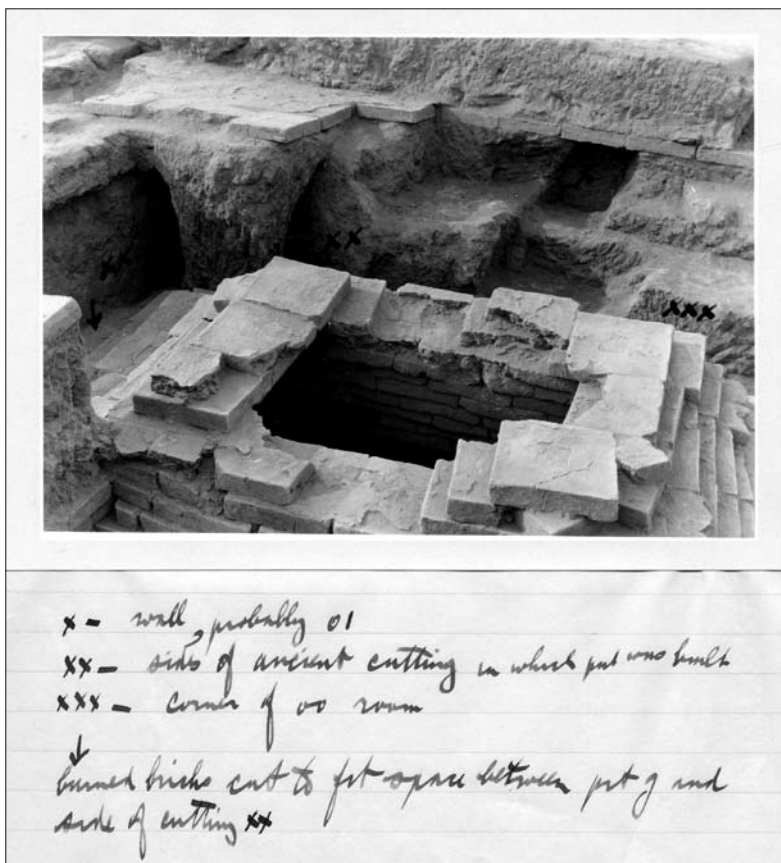 xx
xx
↓
xxx
x - wall, probably 01
xx - sides of ancient cutting in which pit was built
xxx - corner of 00 room
↓
burned bricks cut to fit space between pit g and
side of cutting xx